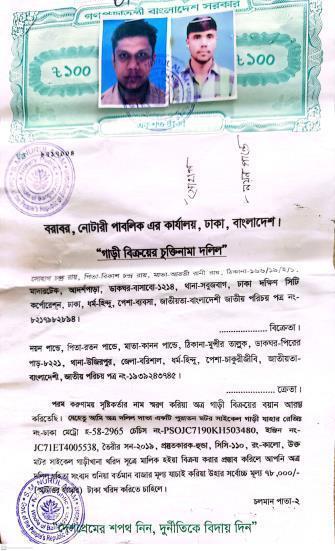 গণপ্রজাতন্ত্রী বাংলাদেশ সরকার
৳১০০ ৳১০০
বরাবর, নোটারী পাবলিক এর কার্যালয়, ঢাকা, বাংলাদেশ।
"গাড়ী বিক্রয়ের চুক্তিনামা দলিল"
চন্দ্র রায়, পিতা-বিকাশ চন্দ্র রায়, মাতা-আরতী রানী রায়, ঠিকানা-১৬৬/১৬/২/১,
মাদারটেক, আদর্শপাড়া, ডাকঘর-বাসাবো-১২১৪, থানা-সবুজবাগ, ঢাকা দক্ষিণ সিটি
কর্পোরেশন, ঢাকা, ধর্ম-হিন্দু, পেশা-ব্যবসা, জাতীয়তা-বাংলাদেশী জাতীয় পরিচয় পত্র নং-
৮২১৭৯৮২৮৯৪।
..................বিক্রেতা।
নয়ন পান্ডে, পিতা-রতন পান্ডে, মাতা-কানন পান্ডে, ঠিকানা-মুশীর তালুক, ডাকঘর-পিরের
পাড়-৮২২১, থানা-উজিরপুর, জেলা-বরিশাল, ধর্ম-হিন্দু, পেশা-চাকুরীজীবি, জাতীয়তা-
বাংলাদেশী, জাতীয় পরিচয় পত্র নং-১৯৩৯২৪৩৭৪৫।
..................ক্রেতা।
পরম করুণাময় সৃষ্টিকর্তার নাম স্মরণ করিয়া অত্র গাড়ী বিক্রয়ের বয়ান আরম্ভ
করিতেছি। যেহেতু আমি অত্র দলিল দাতা একটি পুরাতন মটর সাইকেল গাড়ী যাহার রেজিঃ
নং-ঢাকা মেট্রো হ-58-2965 চেচিস নং-PSOJC7190KH503480, ইঞ্জিন নং-
JC71ET4005538, তৈরীর সন-২০১৯, প্রস্তুতকারক-হন্ডা, সিসি-১১০, রং-কালো, উক্ত
মটর সাইকেল গাড়ীখানা খরিদ সূত্রে মালিক হইয়া বিক্রয় করার প্রস্তাব করিলে আপনি অত্র
দলিল গ্রহিতা সংবাদ শুনিয়া বর্তমান বাজার মূল্য যাচাই করিয়া উহার সর্বোচ্চ মূল্য ৭৮,০০০/-
(আটাত্তর হাজার) টাকা খরিদ করিতে চাহিলে।
চলমান পাতা-২
"দেশপ্রেমের শপথ নিন, দুর্নীতিকে বিদায় দিন"